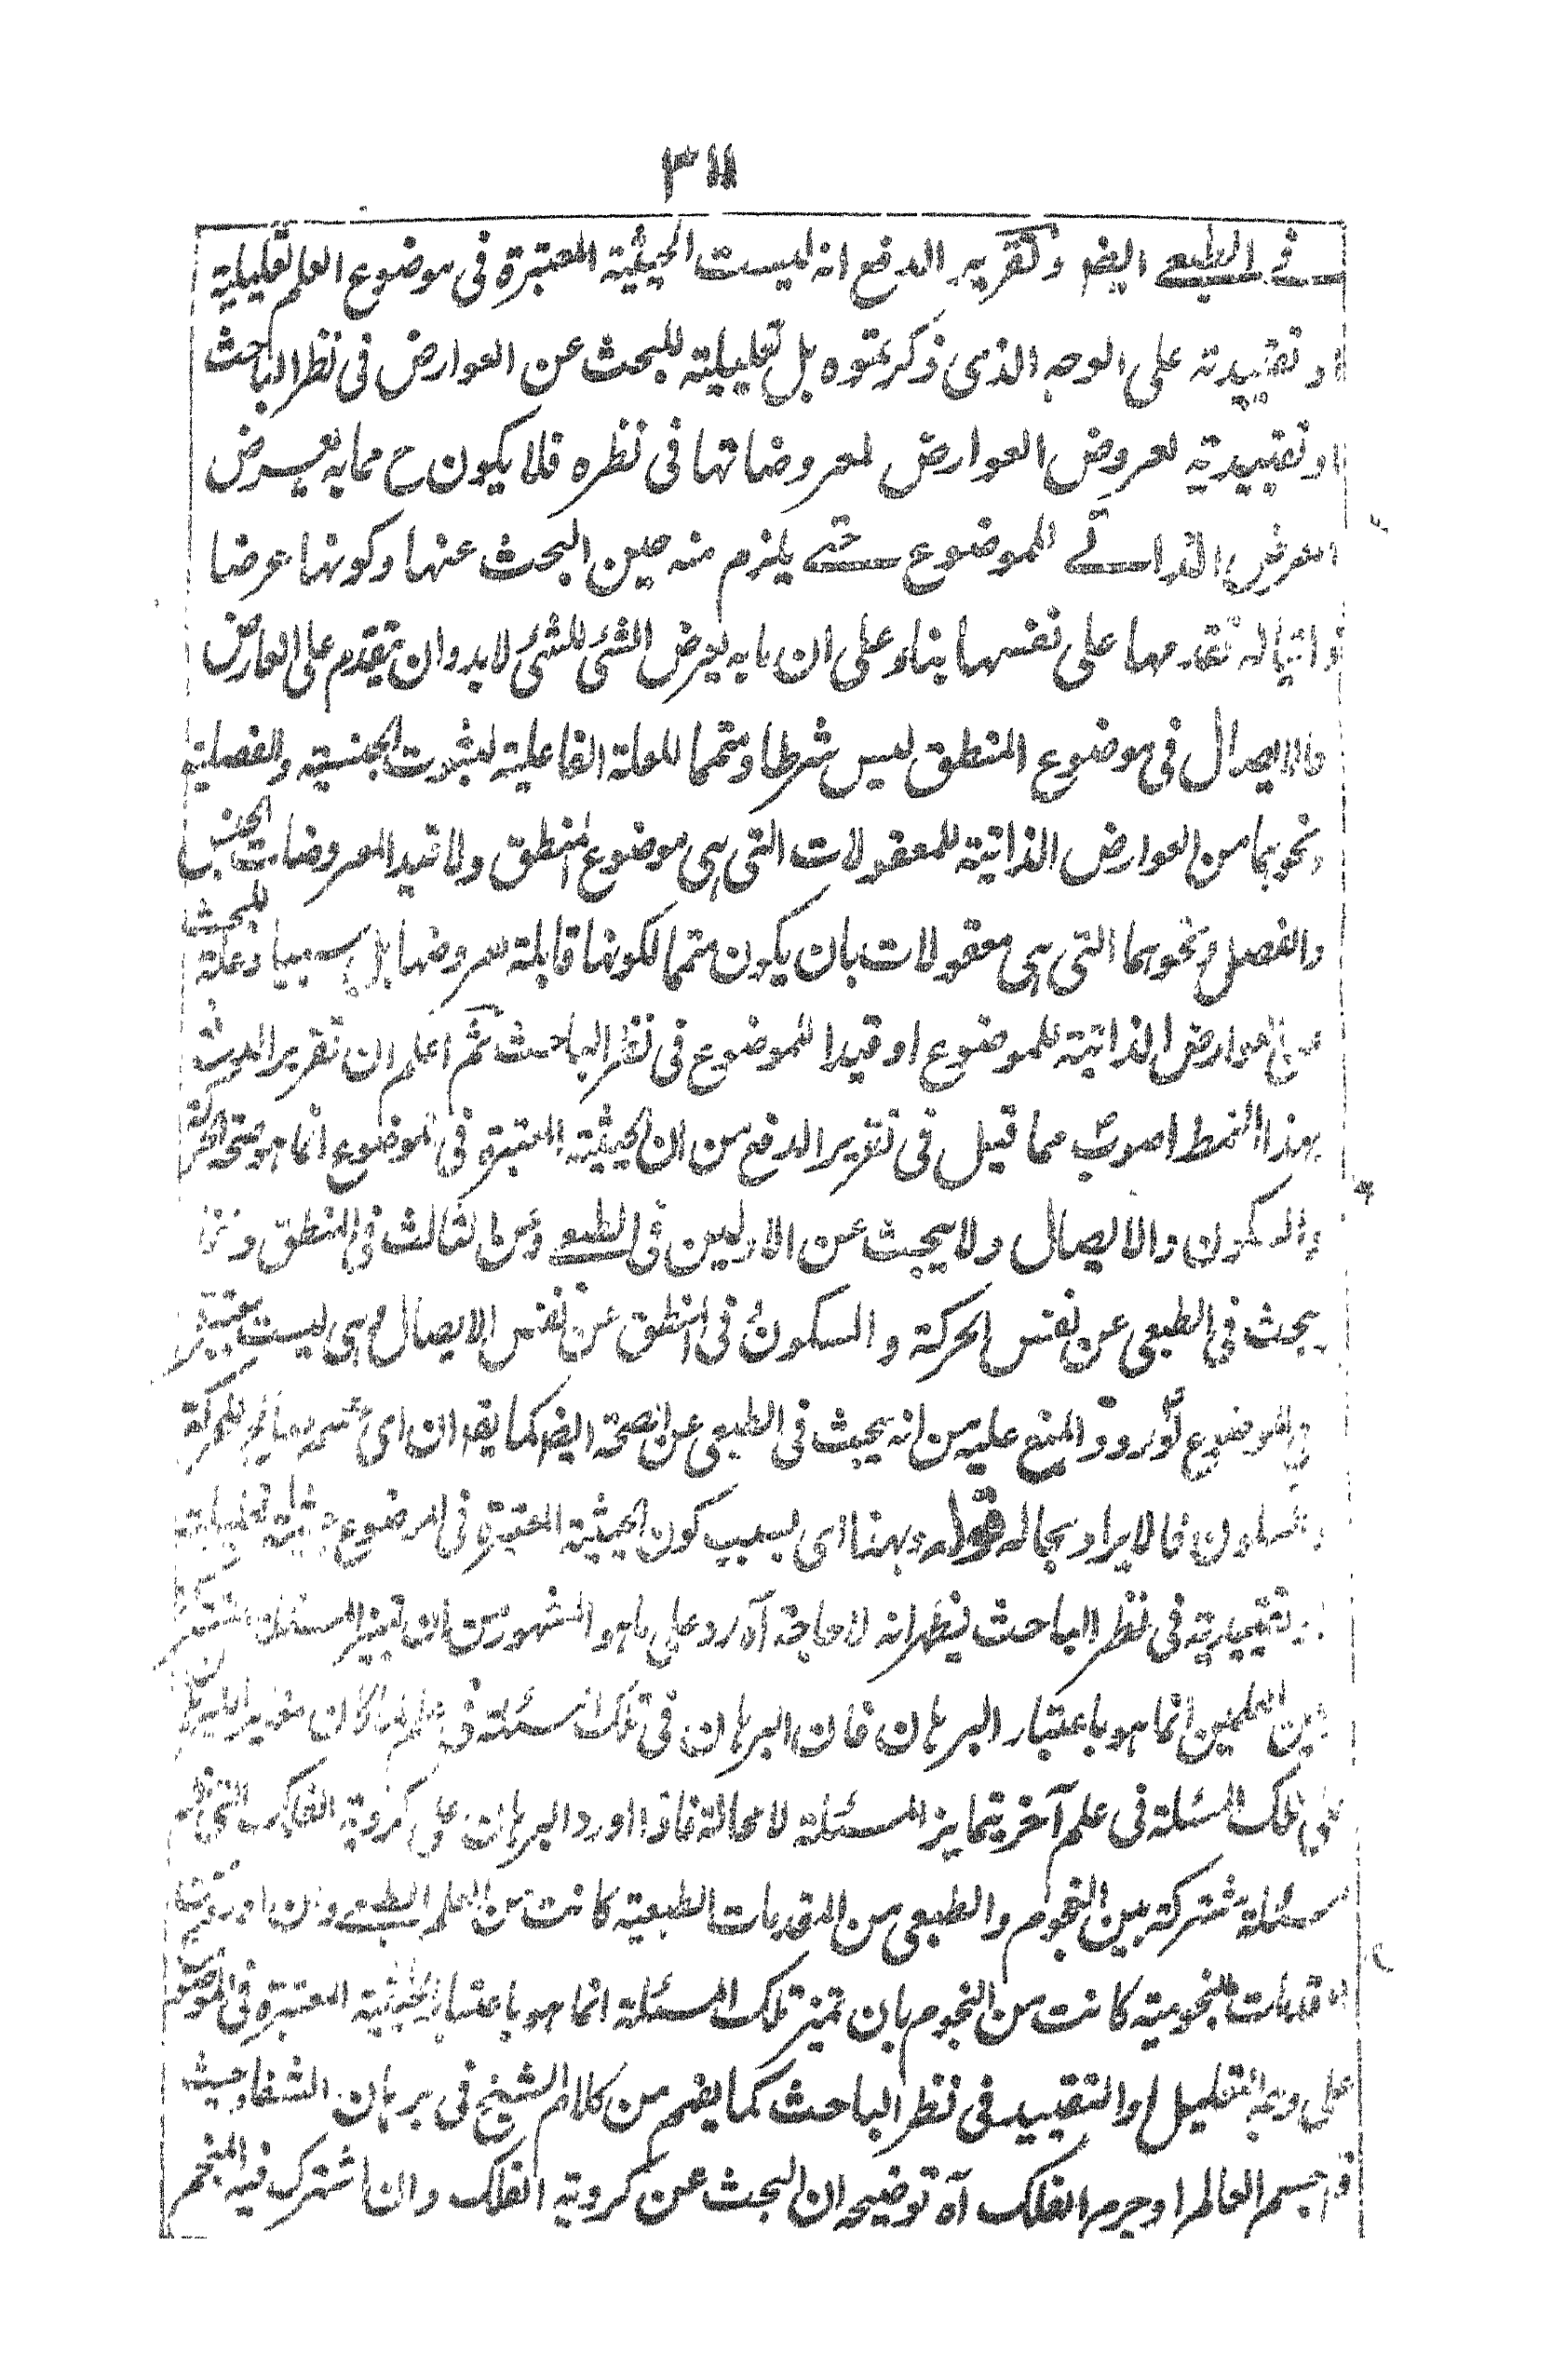 ٣١١
فى الطبعے ايضا وتقريره الدفع انه ليست الحيثية المعتبرة فى موضوع العلم تعليلية
او تقييدية على الوجه الذى ذكرتموه بل تعليلية للبحث عن العوارض فى نظر الباحث
او تقييدية لعروض العوارض لمعروضاتها فى نظره فلا يكون ح مما به يعرض
العرض الذاتے للموضوع حتے يلزم منه حين البحث عنها وكونها عرضا
ذاتيا له تقدمها على نفسها بناء على ان ما به يعرض الشئ للشئ لابد وان يتقدم على العارض
فالايصال فى موضوع المنطق ليس شرطا ومتمما للعلة الفاعلية لثبوت الجنسية والفصلية
ونحوهما من العوارض الذاتية للمعقولات التى هى موضوع المنطق ولا قيدا لمعروضات الجنس
والفصل ونحوهما التى هى معقولات بان يكون متمما لكونها قابلة لعروضها بل سببا وعلة للبحث
عن العوارض الذاتية للموضوع او قيدا للموضوع فى نظر الباحث ثم اعلم ان تقرير الدفع
بهذا النمط اصوب مما قيل فى تقرير الدفع من ان الحيثية المعتبرة فى الموضوع انما هو صحة الحركة
والسكون والايصال ولا يبحث عن الاوليين فى الطبعے وعن الثالث فى المنطق و
يبحث فى الطبعى عن نفس الحركة والسكون فى المنطق عن نفس الايصال وهى ليست معتبرة
فى الموضوع لورود المنع عليه من انه يبحث فى الطبعى عن الصحة ايضا كما يقه ان اى جسم
فالايراد بحاله قوله وبهنا اى بسبب كون الحيثية المعتبرة فى الموضوع حيثية تعليلية
او تقييدية فى نظر الباحث يظهر انه لا حاجة آه رد على ما هو المشهور من ان تميز المسئلة المشتركة
بين العلمين انما هو باعتبار البرهان فان البرهان فى تلك المسئلة فى علم
على تلك المسئلة فى علم آخر يتمايز المسئلة لا محالة فاذا اورد البرهان على كروية الفلك التى هى
مسئلة مشتركة بين النجوم والطبعى من المقدمات الطبعية كانت من العلم الطبعے وان اورد من
المقدمات النجومية كانت من النجوم بان تميز تلك المسئلة انما هو باعتبار الحيثية المعتبرة فى الموضوع
على وجه التعليل او التقييد فى نظر الباحث كما يفهم من كلام الشيخ فى برهان الشفا وحيث
قوله جسم العالم او جرم الفلك آه توضيحه ان البحث عن كروية الفلك وان اشترك فيه المنجم